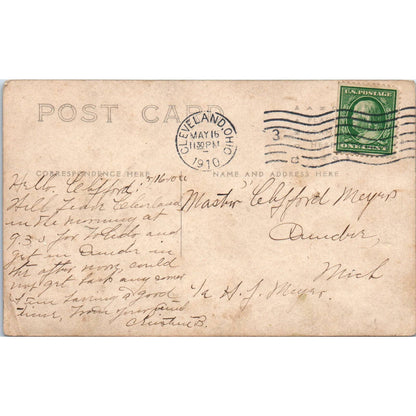 POST CARD
CLEVELAND, OHIO
MAY 16
11 30 PM
1910
3
C
U.S. POSTAGE
ONE CENT
CORRESPONDENCE HERE
NAME AND ADDRESS HERE
Hello Clifford:
Will leave Cleveland
in the morning at
9.30 for Toledo and
get in Dundee in
the after noon, could
not get back any sooner
I am having a good
time, from your friend
B.
Master Clifford Meyer
Dundee,
Mich
c/o H. J. Meyer.